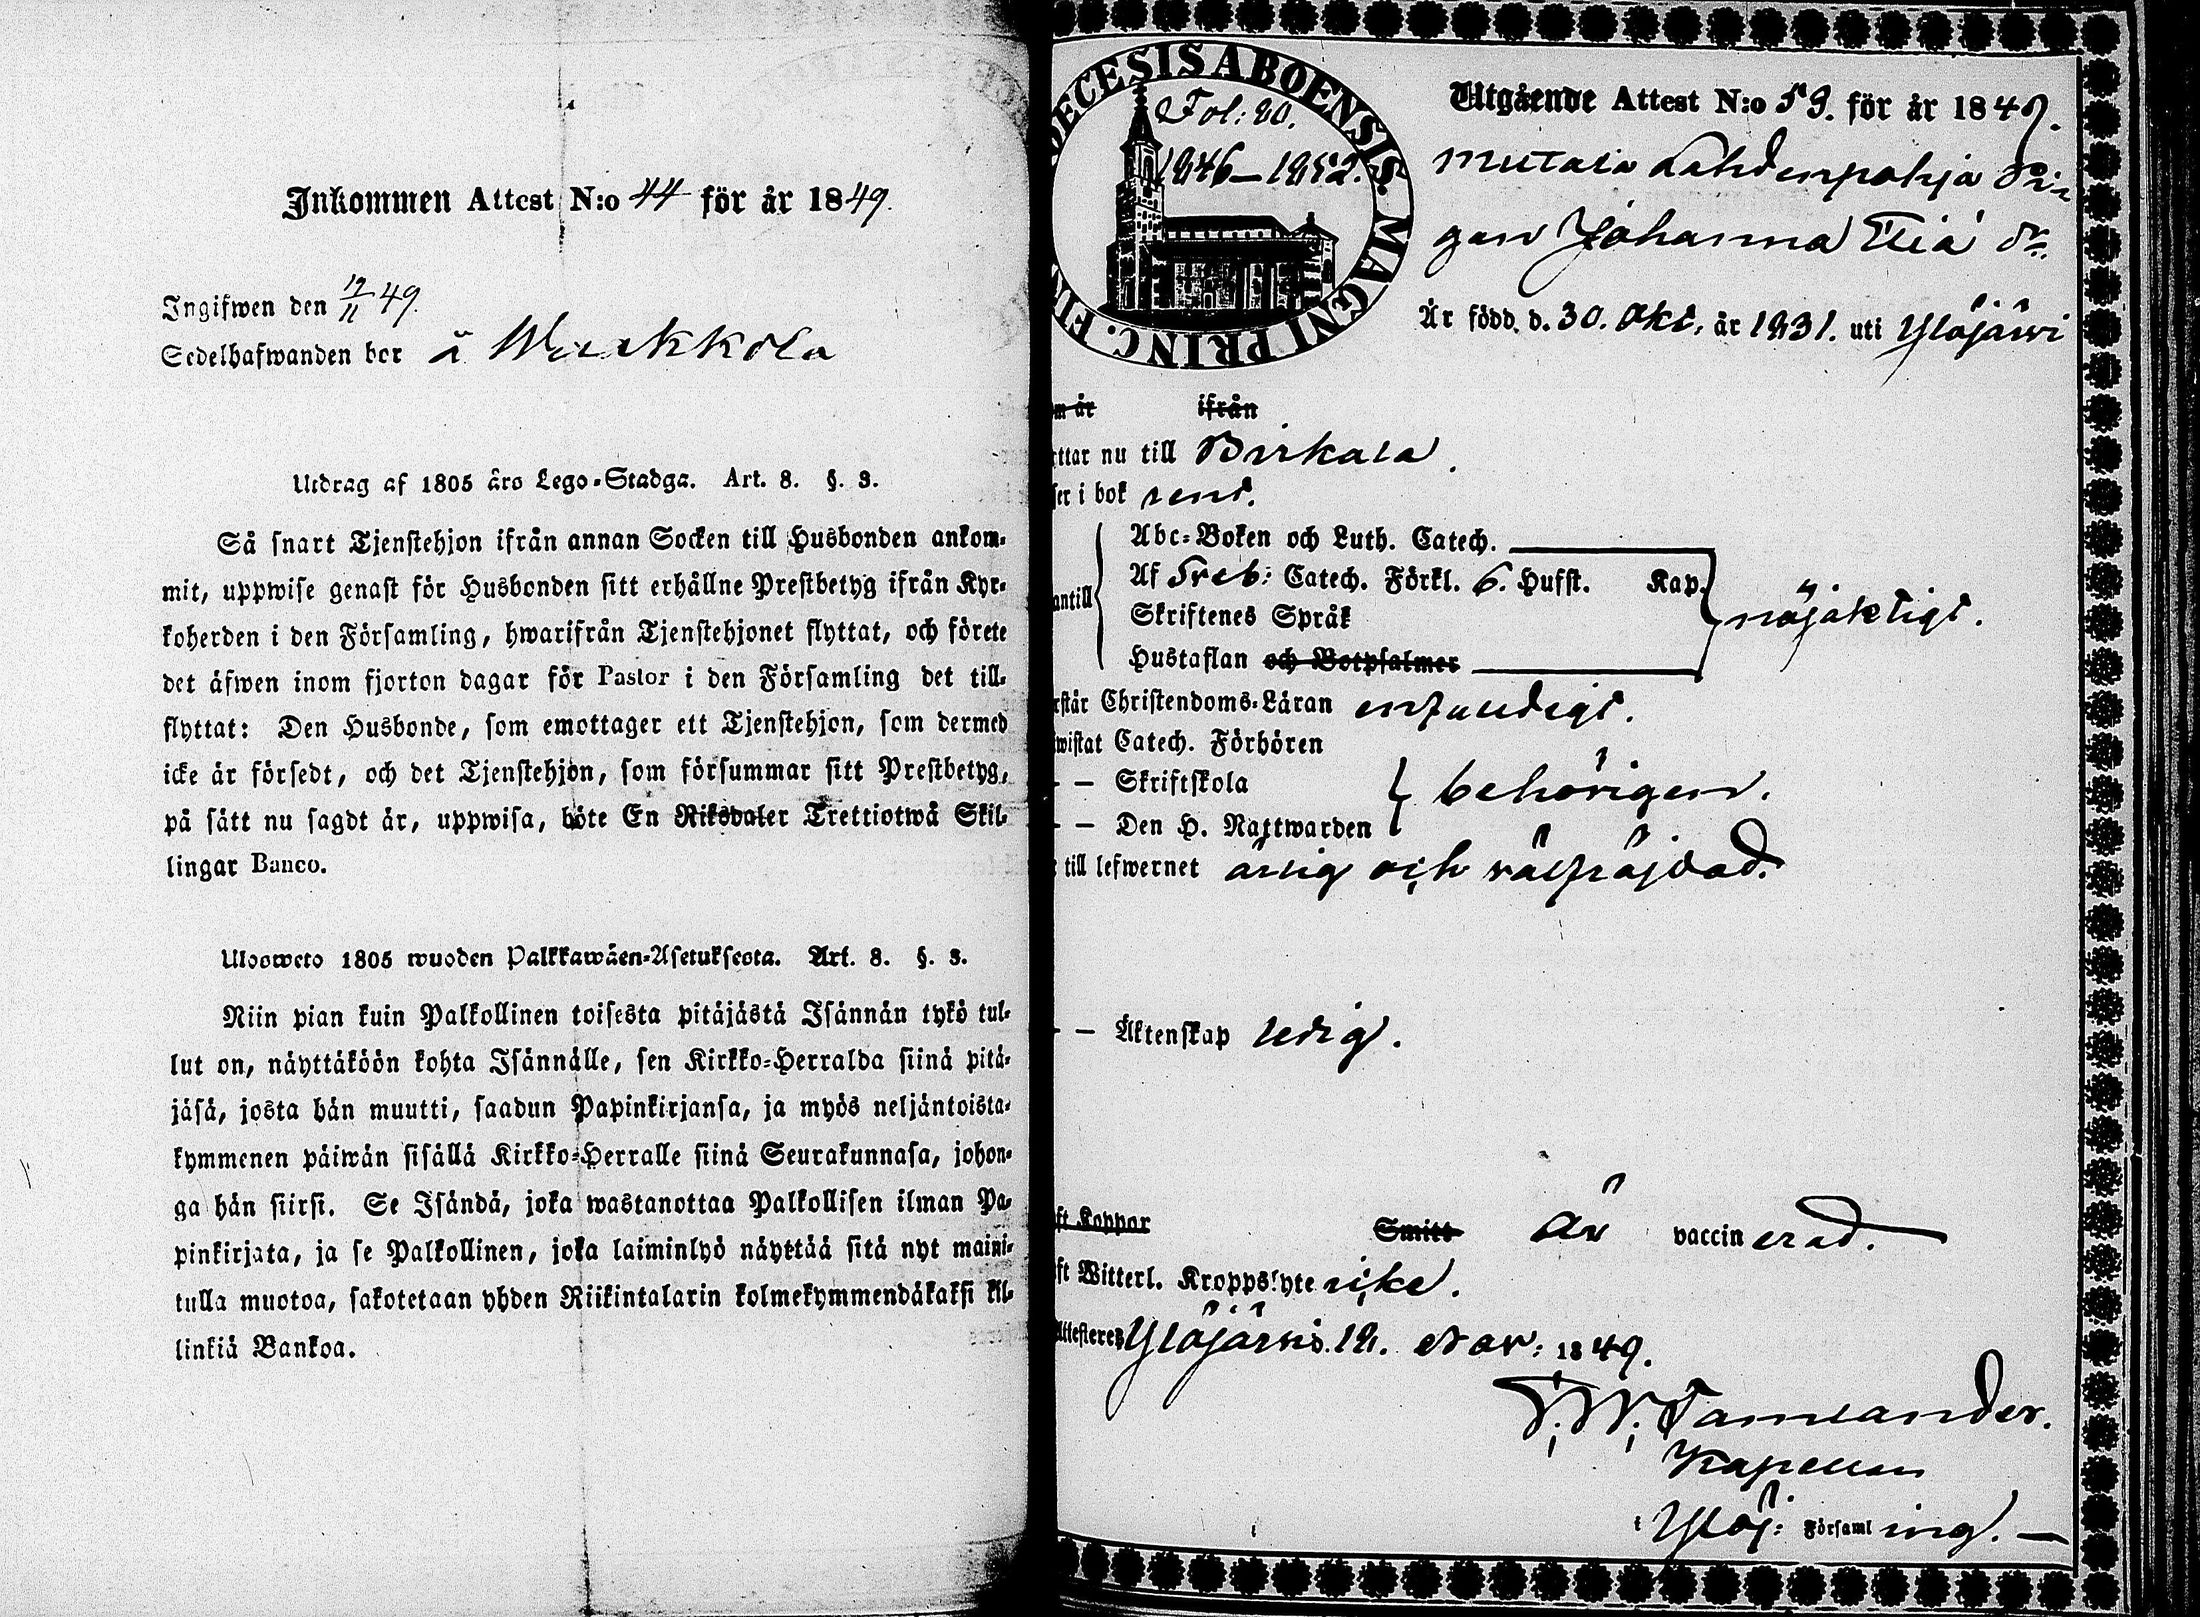 Inkommen Attest N:o 44 för år 1849.
Ingifwen den 19/11 49.
Sedelhafwanden bor å
Utdrag af 1805 års Lego-Stadga. Art. 8. §. 3.
Så snart Tjenstehjon ifrån annan Socken till Husbonden ankom-
mit, uppwise genast för Husbonden sitt erhållne Prestbetyg ifrån Kyr-
koherden i den Församling, hwarifrån Tjenstehjonet flyttat, och förete
det äfwen inom fjorton dagar för Pastor i den Församling det till-
flyttat: Den Husbonde, som emottager ett Tjenstehjon, som dermed
icke är försedt, och det Tjenstehjon, som försummar sitt Prestbetyg,
på sätt nu sagdt är, uppwisa, böte En Riksdaler Trettiotwå Skil-
lingar Banco.
Ulosweto 1805 wuoden Palkkawäen-Asetuksesta. Art. 8. §. 3.
Niin pian kuin Palkollinen toisesta pitäjästä Isännän tykö tul-
lut on, näyttäköön kohta Isännälle, sen Kirkko-Herralda siinä pitä-
jäsä, josta hän muutti, saadun Papinkirjansa, ja myös neljäntoista-
kymmenen päiwän sisällä Kirkko-Herralle siinä Seurakunnasa, johon-
ga hän siirsi. Se Isändä, joka wastanottaa Palkollisen ilman Pa-
pinkirjata, ja se Palkollinen, joka laiminlyö näyttää sitä nyt maini-
tulla muotoa, sakotetaan yhden Riikintalarin kolmekymmendäkaksi kil-
linkiä Bankoa.
DECESIS ABOENSIS. MAGNI PRINC. FIN
Fol: 80.
1846-1852.
Utgående Attest N:o 59. för år 1849.
Mutala Lahdenpohja Pi-
gan Johanna Eliæ dr.
Är född. d. 30. Okt. år 1831. uti Ylöjäwi
m år ifrån
ttar nu till Birkala.
ser i bok rent.
antill
Abc-Boken och Luth. Catech.
Af Sveb: Catech. Förkl. 6. Hufst. Kap.
Skriftenes Språk
Hustaflan och Botpsalmer
nöjaktigt.
rstår Christendoms-Läran enfaldigt.
wistat Catech. Förhören
- - Skriftskola
- - Den H. Nattwarden
behörigen.
till lefwernet ärlig och välfräjdad.
- - Äktenskap ledig.
ft Koppor Smitt är vaccinerad.
ft Witterl. Kroppslyte icke.
Attesteres Ylöjärvi. 12. Nov: 1849.
Kapellan
i Ylöj: Församling.